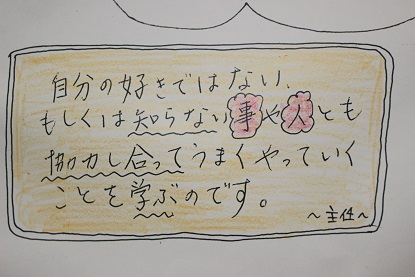 自分の好きではない、
もしくは知らない事や人とも
協力し合ってうまくやっていく
ことを学ぶのです。
～主任～